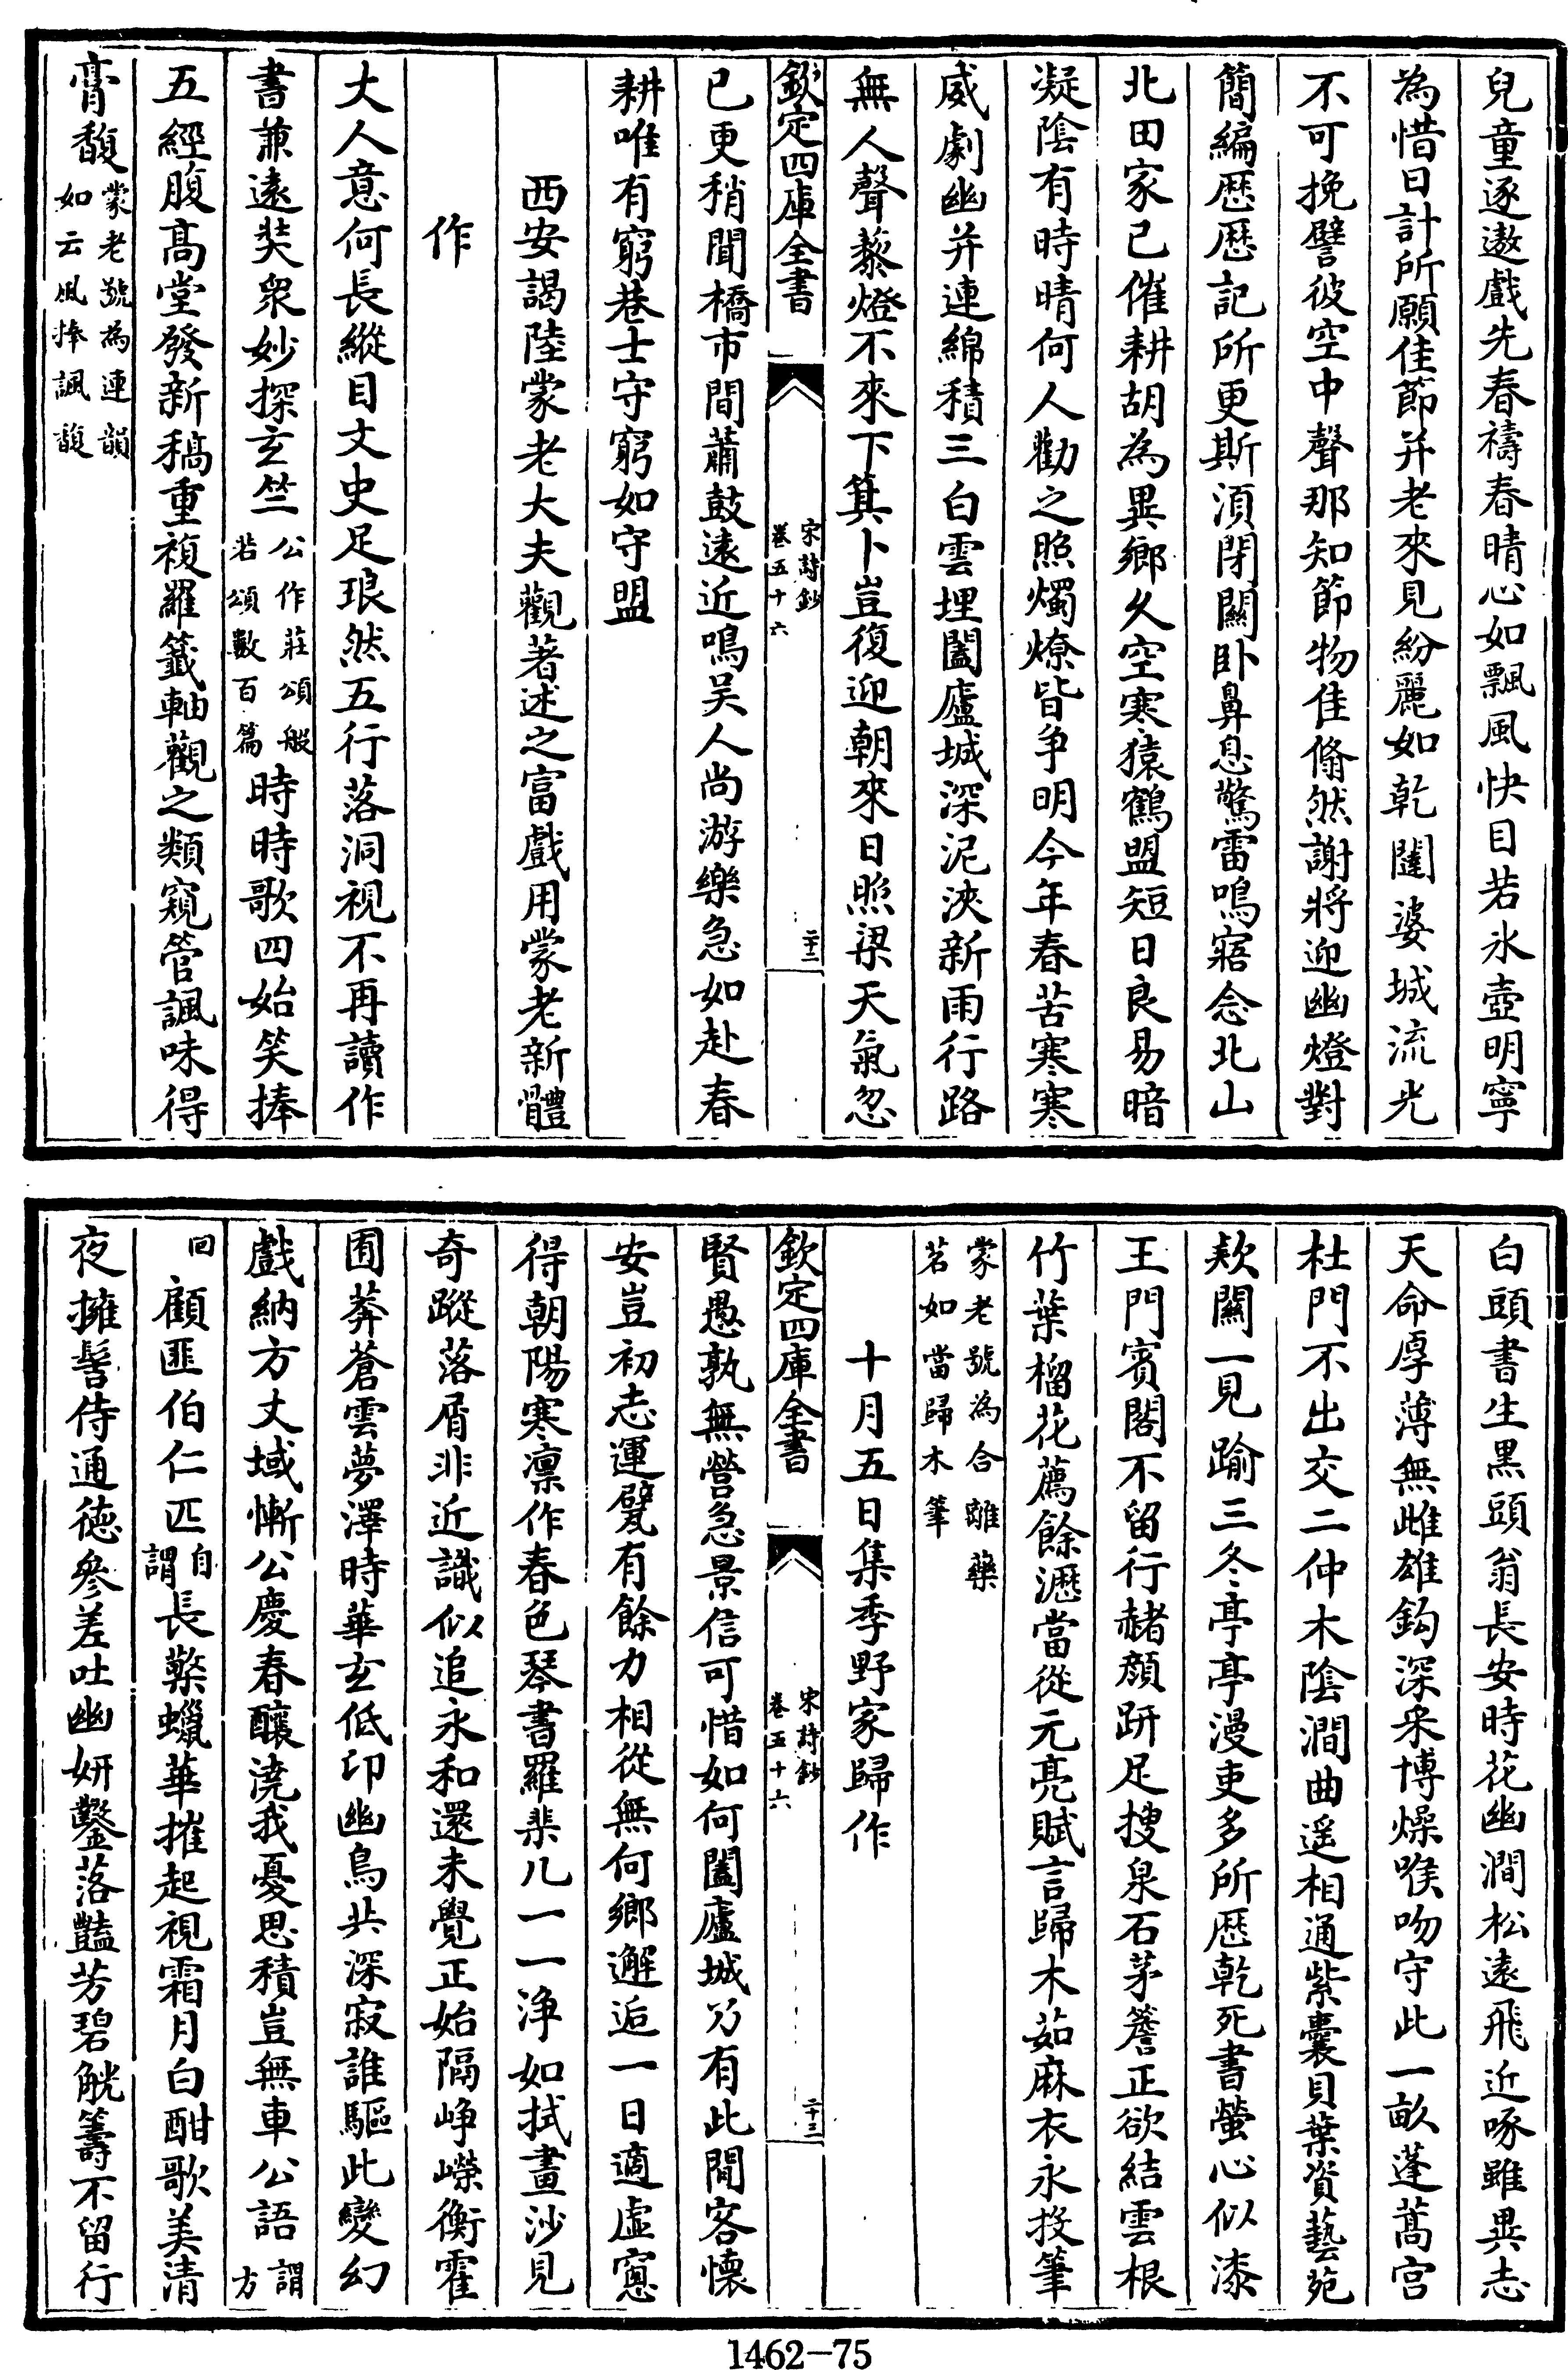 兒童逐遨戲先春禱春晴心如飄風快目若氷壺明寧
為惜日計所願佳節并老來見紛麗如乾闥婆城流光
不可挽譬彼空中聲那知節物佳翛然謝將迎幽燈對
簡編歴歴記所更斯須閉關卧鼻息驚雷鳴寤念北山
北田家已催耕胡為異鄉久空寒猿鶴盟短日良易暗
凝陰有時晴何人勸之照燭燎皆争明今年春苦寒寒
威劇幽并連綿積三白雲埋闔廬城深泥浹新雨行路
無人聲藜燈不來下箕卜豈復迎朝來日照梁天氣忽
欽定四庫全書
宋詩鈔
卷五十六
二十二
已更稍聞橋市間蕭鼓遠近鳴吴人尚游樂急如赴春
耕唯有窮巷士守窮如守盟
西安謁陸蒙老大夫觀著述之富戲用蒙老新體
作
丈人意何長縱目文史足琅然五行落洞視不再讀作
書兼遠奘衆妙探玄竺公作莊頌般
若頌數百篇時時歌四始笑捧
五經腹高堂發新稿重複羅籤軸觀之類窺管諷味得
膏馥蒙老號為連韻
如云風捧諷馥
白頭書生黑頭翁長安時花幽澗松遠飛近啄雖異志
天命厚薄無雌雄鈎深采博燥喉吻守此一畝蓬蒿宫
杜門不出交二仲木陰澗曲遥相通紫囊貝葉資藝苑
欵關一見踰三冬亭亭漫吏多所歴乾死書螢心似漆
王門賓閣不留行赭顔趼足搜泉石茅簷正欲結雲根
竹葉榴花薦餘瀝當從元亮賦言歸木茹麻衣永投筆
蒙老號為合離藥
茗如當歸木筆
十月五日集季野家歸作
欽定四庫全書
宋詩鈔
卷五十六
二十三
賢愚孰無營急景信可惜如何闔廬城乃有此閒客懷
安豈初志運甓有餘力相從無何鄉邂逅一日適虚窻
得朝陽寒凛作春色琴書羅棐几一一浄如拭畫沙見
奇蹤落屑非近識似追永和還未覺正始隔峥嶸衡霍
囿莽蒼雲夢澤時華玄低印幽鳥共深寂誰驅此變幻
戲納方丈域慚公慶春釀澆我憂思積豈無車公語謂
方
回顧匪伯仁匹自
謂長蘂蠟華摧起視霜月白酣歌美清
夜擁髻侍通徳參差吐幽妍鑿落豔芳碧觥籌不留行
1462-75